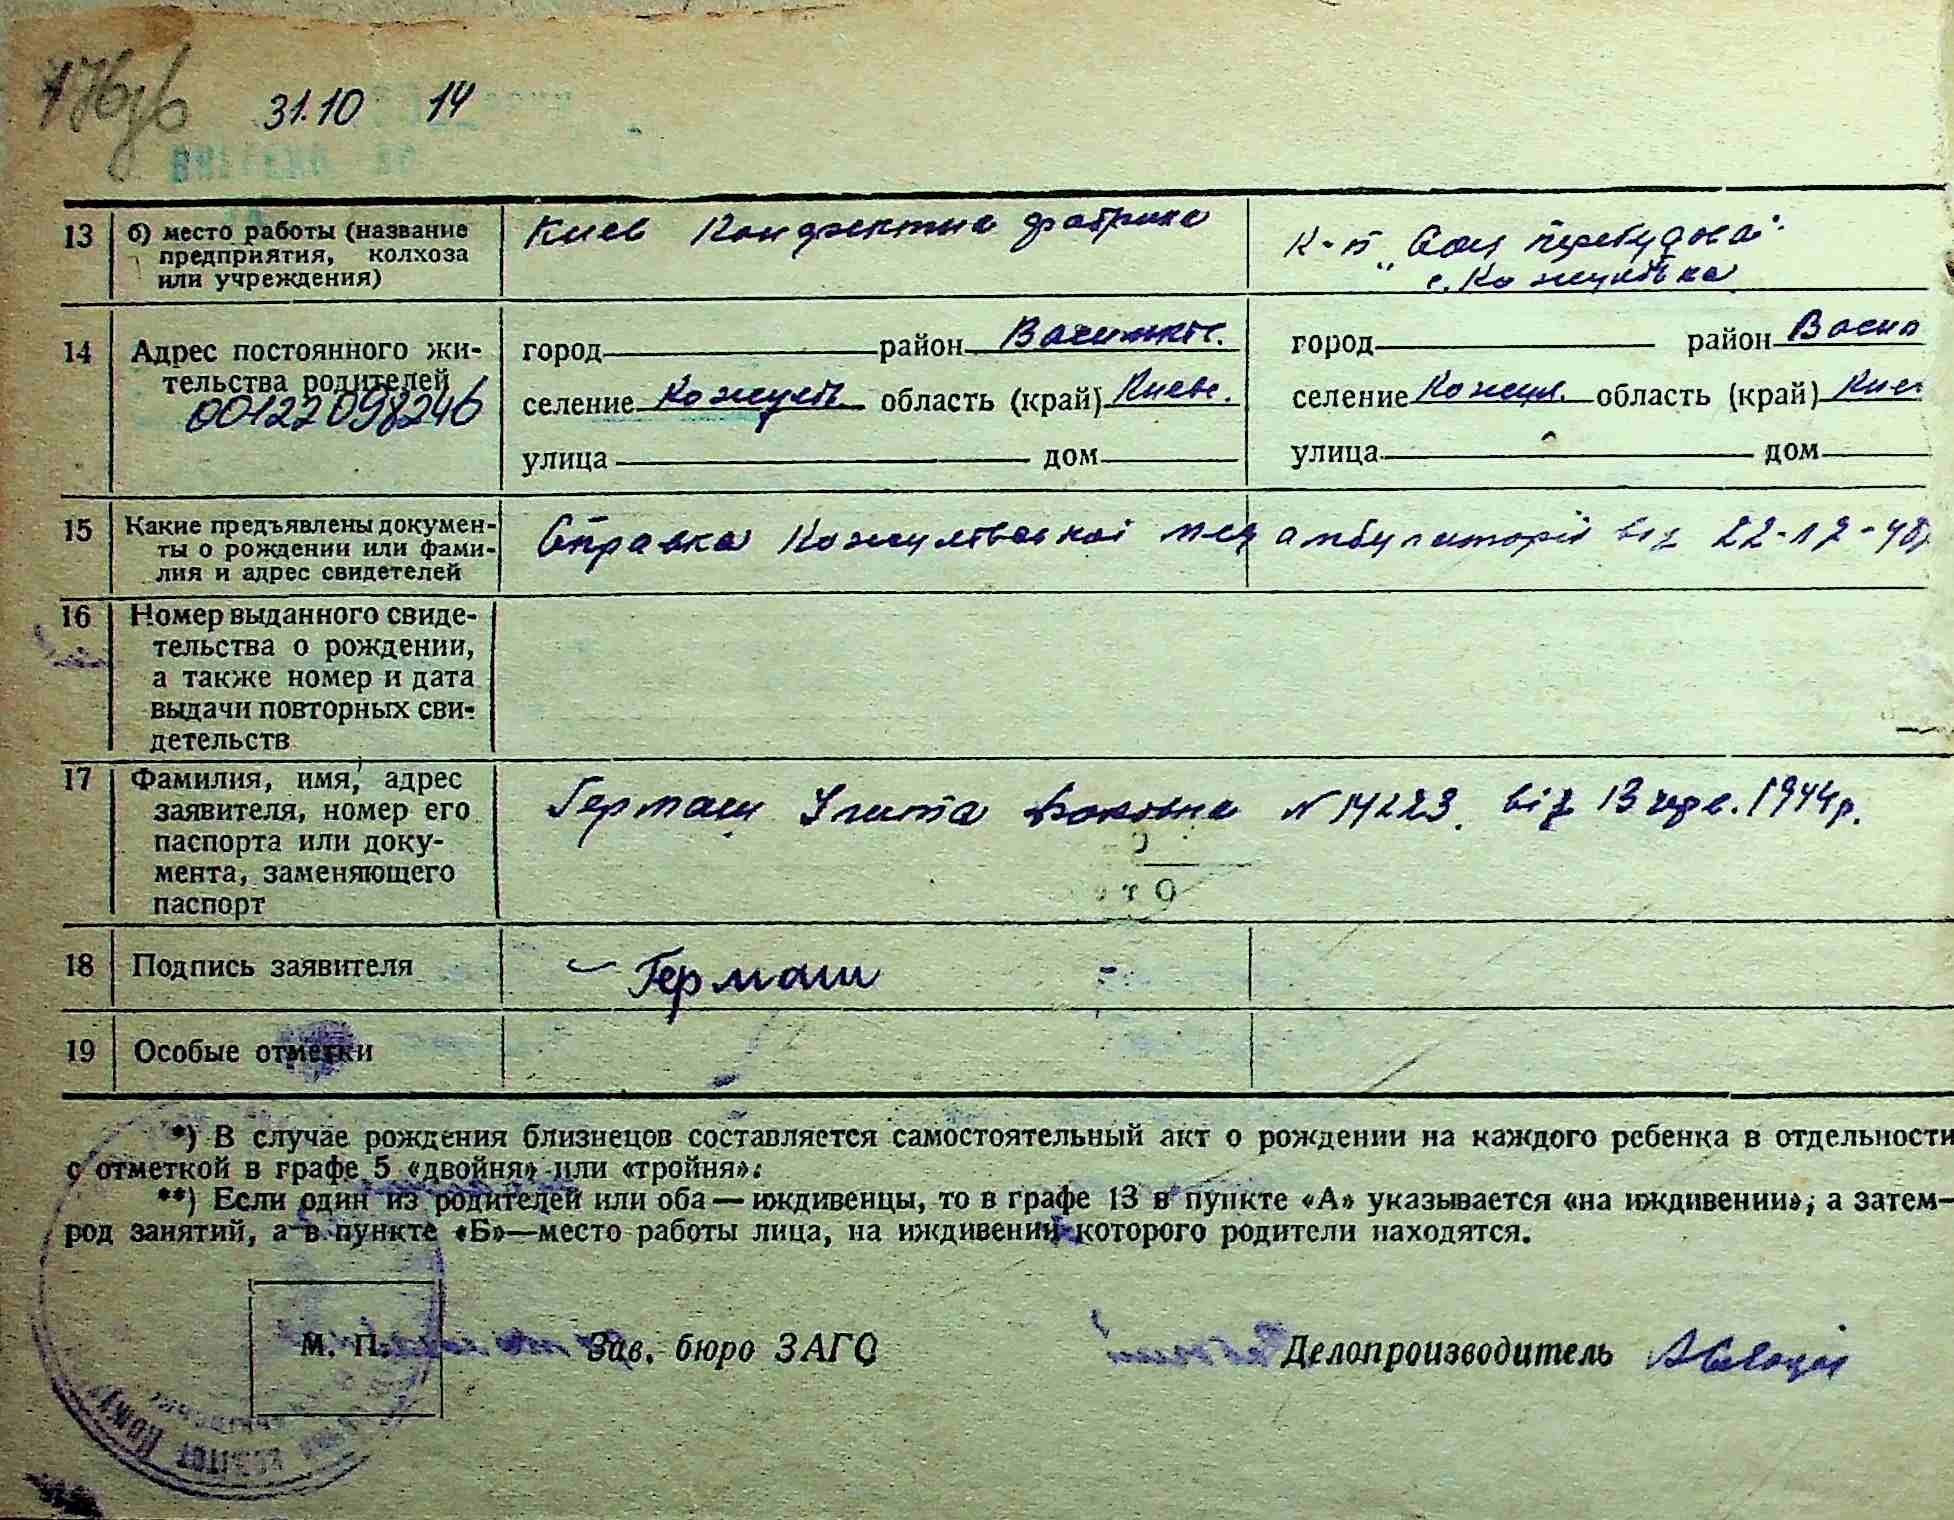 176
31.10 14
13 б) место работы (название предприятия, колхоза или учреждения)
Киев Конфектна фабрика
К-п „Соц перебудова"
с. Кожухівка
14 Адрес постоянного жительства родителей
00122098246
город район Васильків.
селение Кожухів. область (край) Киевс.
улица дом
город район Васи
селение Кожух. область (край) Киев
улица дом
15 Какие предъявлены документы о рождении или фамилия и адрес свидетелей
Справка Кожухівської мед амбулаторії від 22-12-48
16 Номер выданного свидетельства о рождении, а также номер и дата выдачи повторных свидетельств
17 Фамилия, имя, адрес заявителя, номер его паспорта или документа, заменяющего паспорт
Гермаш Улита № 14223. від 13 черв. 1944 р.
18 Подпись заявителя
Гермаш
19 Особые отметки
*) В случае рождения близнецов составляется самостоятельный акт о рождении на каждого ребенка в отдельности
с отметкой в графе 5 «двойня» или «тройня».
**) Если один из родителей или оба — иждивенцы, то в графе 13 в пункте «А» указывается «на иждивении», а затем—
род занятий, а в пункте «Б»—место работы лица, на иждивении которого родители находятся.
М. П. Зав. бюро ЗАГС Делопроизводитель